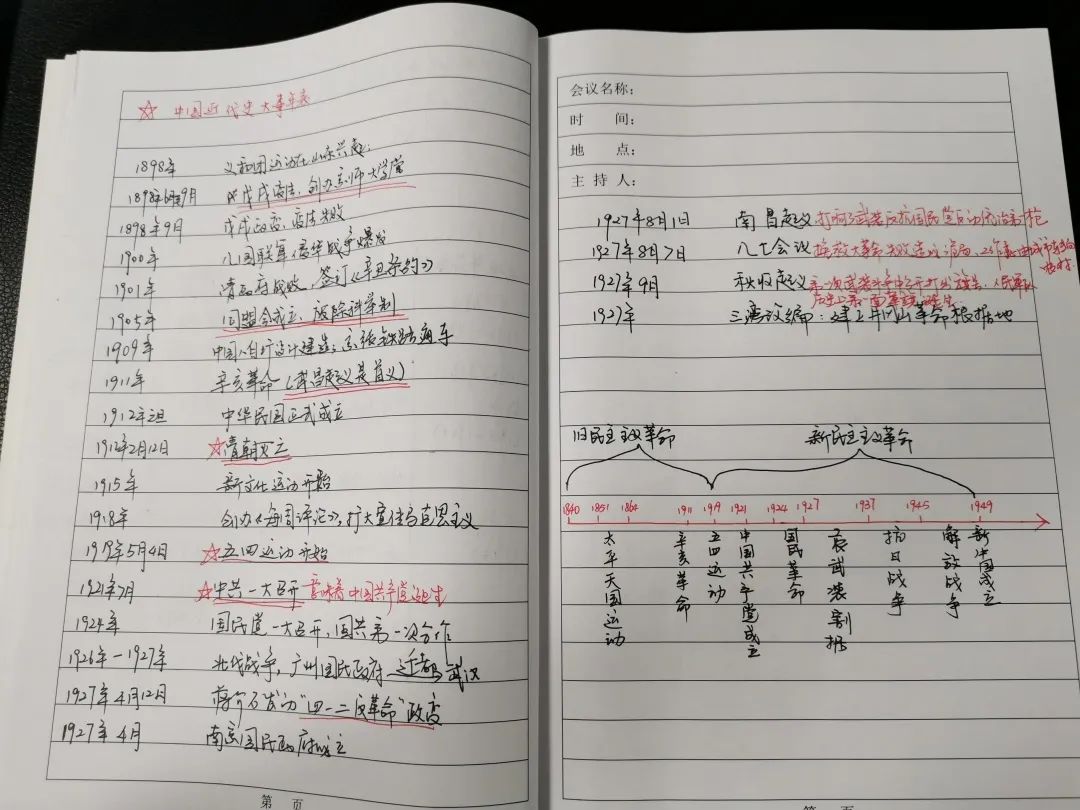 ☆ 中国近代史大事年表
1898年 义和团运动在山东兴起.
1898年6月至9月 戊戌变法，创办京师大学堂
1898年9月 戊戌政变，变法失败
1900年 八国联军侵华战争爆发
1901年 清政府战败，签订《辛丑条约》
1905年 同盟会成立、废除科举制
1909年 中国人自行设计建造：京张铁路通车
1911年 辛亥革命（武昌起义是首义）
1912年元旦 中华民国正式成立
1912年2月12日 ☆清朝灭亡
1915年 新文化运动开始
1918年 创办《每周评论》，扩大宣传马克思主义
1919年5月4日 ☆五四运动开始
1921年7月 ☆中共一大召开 意味着中国共产党诞生
1924年 国民党一大召开，国共第一次合作
1926年-1927年 北伐战争，广州国民政府迁都武汉
1927年4月12日 蒋介石发动"四一二反革命"政变
1927年4月 南京国民政府成立
第 页
会议名称：
时 间：
地 点：
主持人：
1927年8月1日 南昌起义 打响了武装反抗国民党反动统治第一枪
1927年8月7日 八七会议 大革命失败造成 工作重心由城市转向
农村
1927年9月 秋收起义 第一次 武装斗争 公开打出 旗号，人民军队
1927年 三湾改编：建立井冈山革命根据地
旧民主主义革命 新民主主义革命
1840 1851 1864 1911 1919 1921 1924 1927 1937 1945 1949
太平天国运动
辛亥革命
五四运动
中国共产党成立
国民革命
武装割据
抗日战争
解放战争
新中国成立
第 页